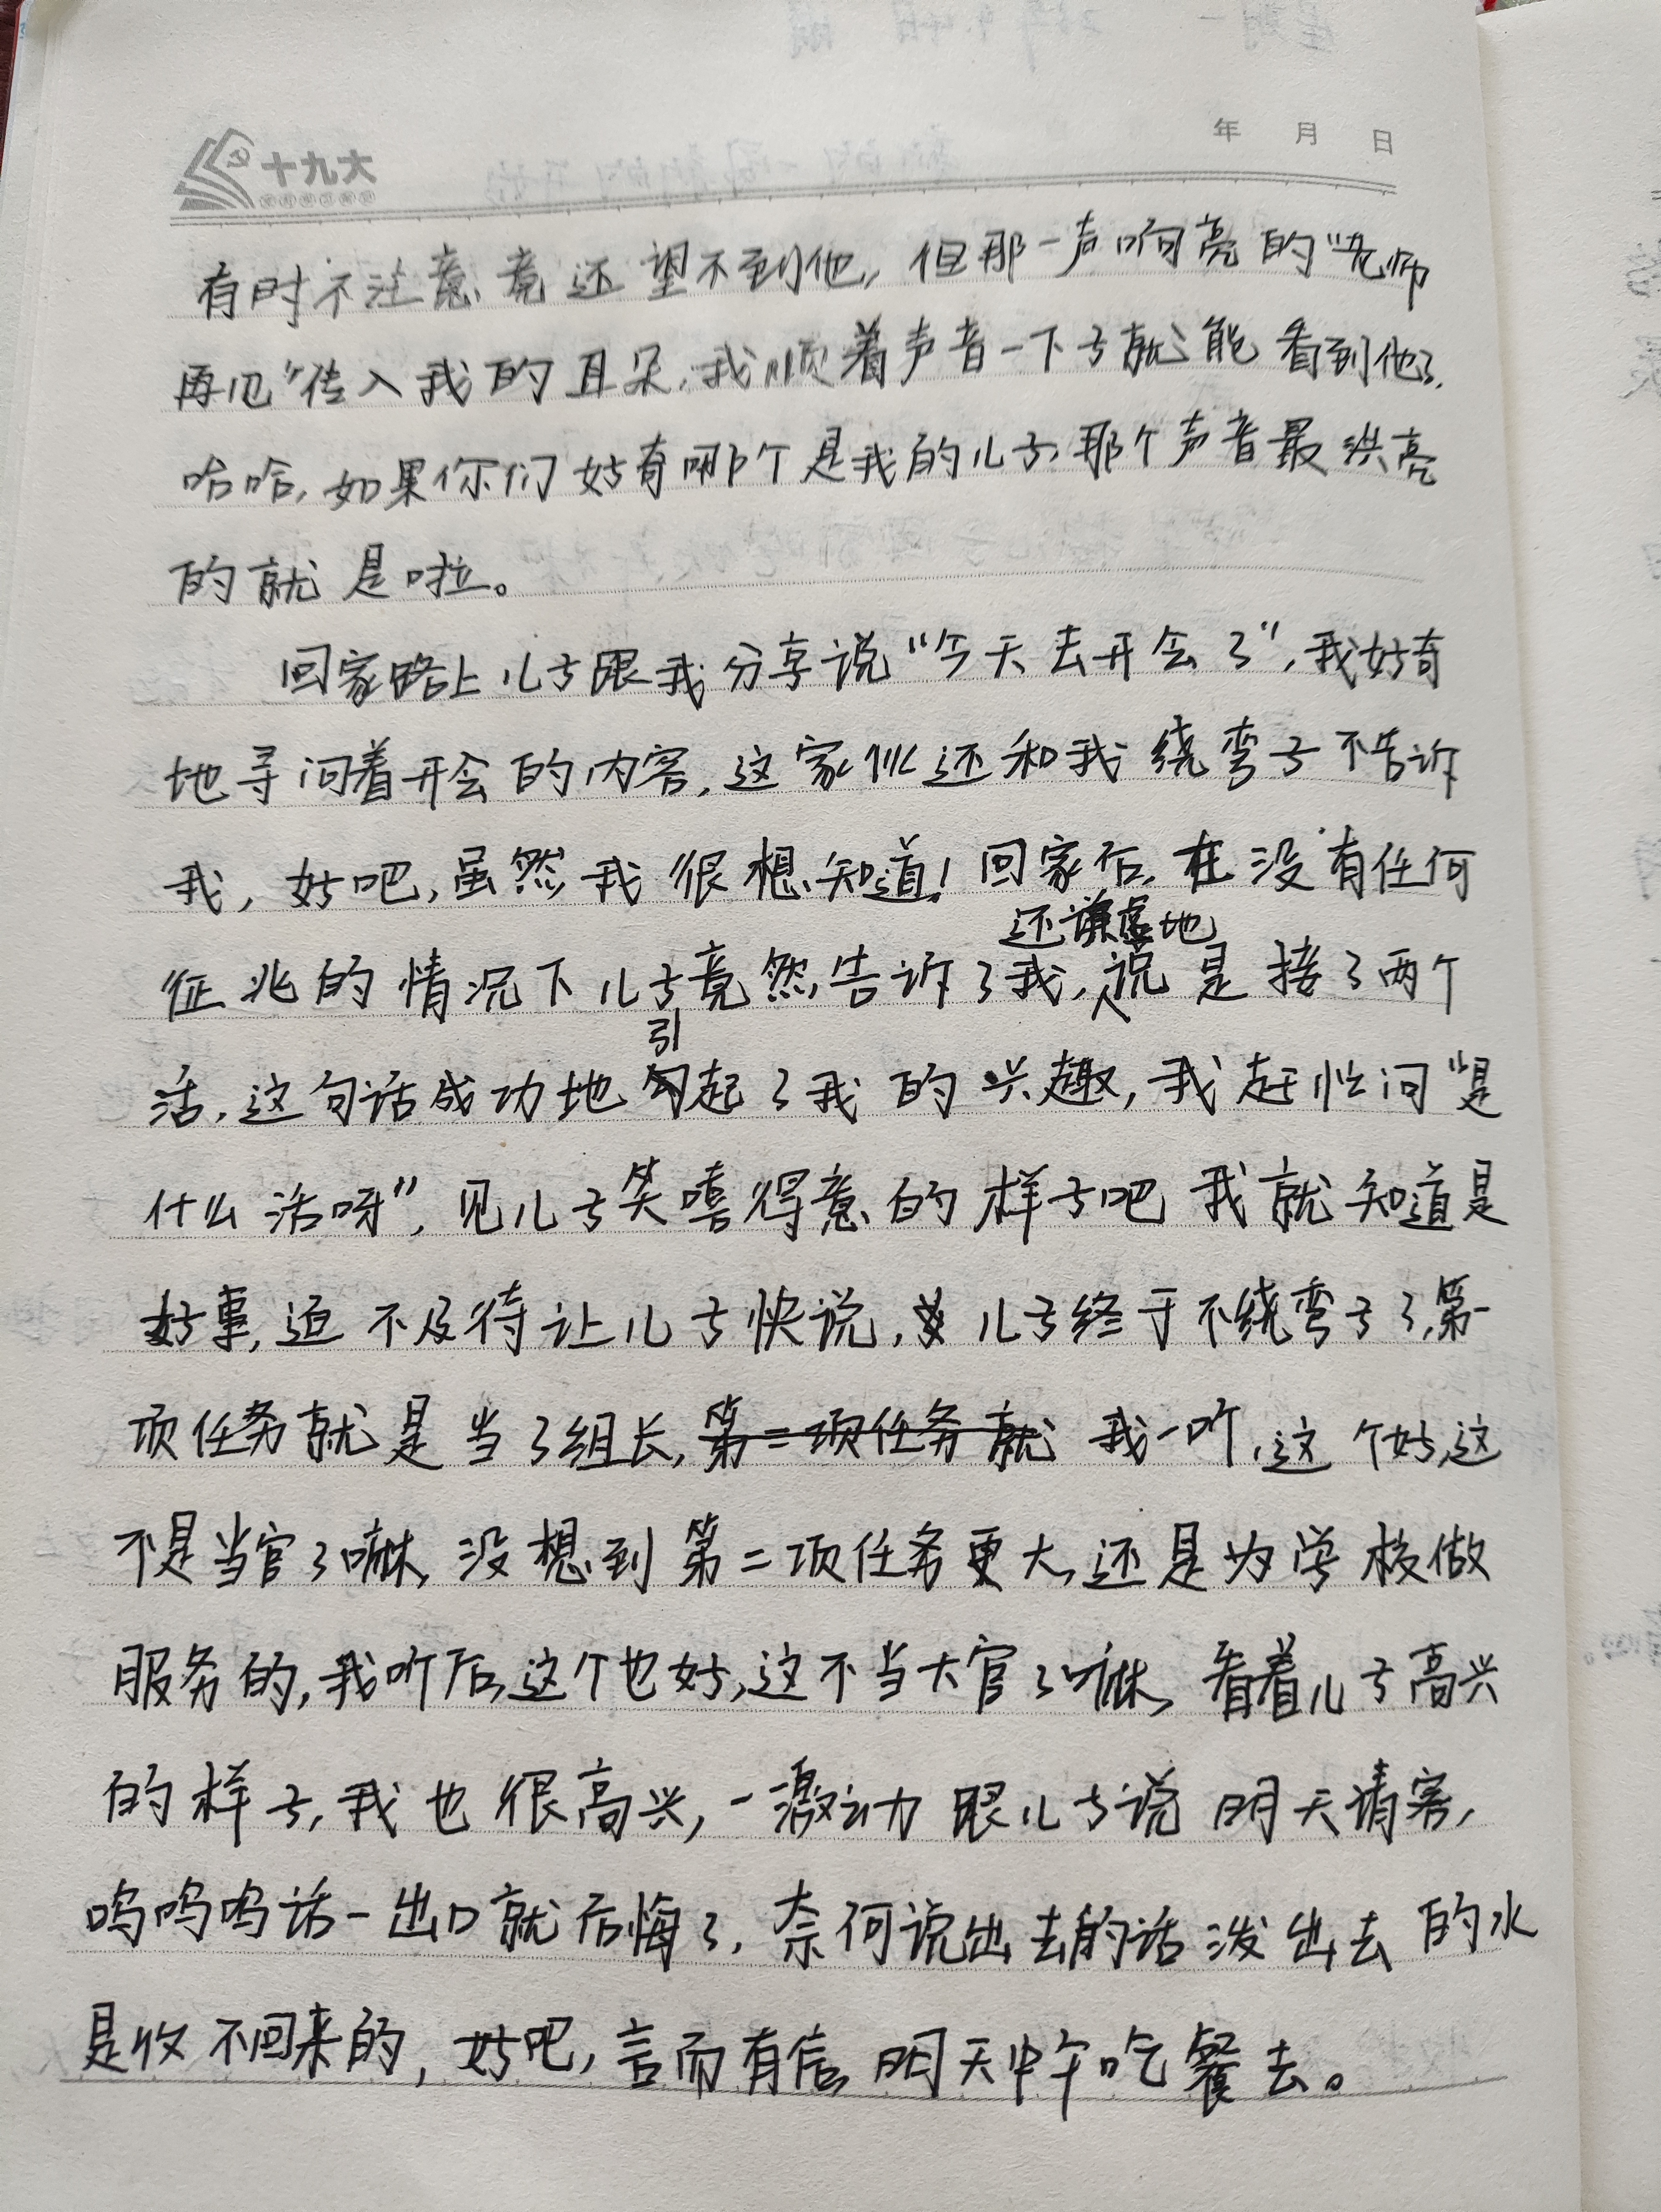 十九大
年 月 日
有时不注意竟还望不到他,但那一声响亮的“老师
再见”传入我的耳朵,我顺着声音一下子就能看到他了.
哈哈,如果你们好奇哪个是我的儿子,那个声音最洪亮
的就是啦。
回家路上儿子跟我分享说“今天去开会了”,我好奇
地寻问着开会的内容,这家伙还和我绕弯子不告诉
我,好吧,虽然我很想知道!回家后,在没有任何
征兆的情况下儿子竟然告诉了我,还谦虚地说是接了两个
活,这句话成功地引起了我的兴趣,我赶忙问“是
什么活呀”,见儿子笑嘻得意的样子吧 我就知道是
好事,迫不及待让儿子快说,儿子终于不绕弯子了,第一
项任务就是当了组长,第二项任务就 我一听,这个好,这
不是当官了嘛,没想到第二项任务更大,还是为学校做
服务的,我听后,这个也好,这不当大官了嘛,看着儿子高兴
的样子,我也很高兴,一激动跟儿子说明天请客,
呜呜呜话一出口就后悔了,奈何说出去的话泼出去的水
是收不回来的,好吧,言而有信,明天中午吃餐去。